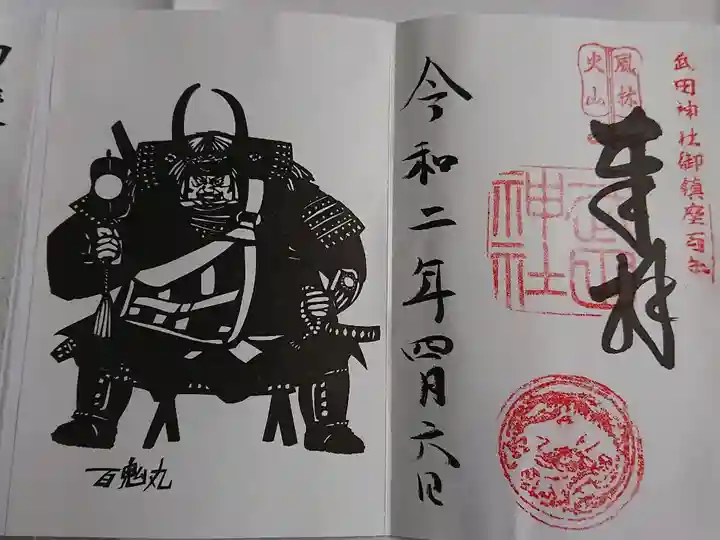 武田神社御鎮座百年
風林
火山
奉拝
武田
神社
令和二年四月六日
百鬼丸